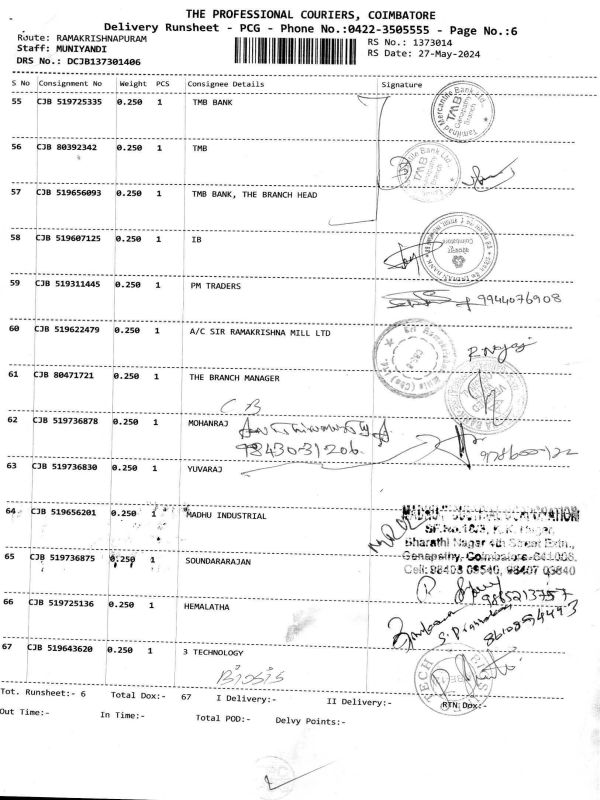 THE PROFESSIONAL COURIERS, COIMBATORE
Delivery Runsheet - PCG - Phone No.:0422-3505555 - Page No.:6
Route: RAMAKRISHNAPURAM
RS No.: 1373014
Staff: MUNIYANDI
RS Date: 27-May-2024
DRS No.: DCJB137301406
S No Consignment No Weight PCS Consignee Details Signature
55 CJB 519725335 0.250 1 TMB BANK
Tamilnad Mercantile Bank Ltd.
TMB
Ganapathy
Branch
56 CJB 80392342 0.250 1 TMB
Bank Ltd.
TMB
57 CJB 519656093 0.250 1 TMB BANK, THE BRANCH HEAD
58 CJB 519607125 0.250 1 IB
59 CJB 519311445 0.250 1 PM TRADERS
9944076908
60 CJB 519622479 0.250 1 A/C SIR RAMAKRISHNA MILL LTD
61 CJB 80471721 0.250 1 THE BRANCH MANAGER
CB
62 CJB 519736878 0.250 1 MOHANRAJ
9843031206
63 CJB 519736830 0.250 1 YUVARAJ
64 CJB 519656201 0.250 1 MADHU INDUSTRIAL
Bharathi Nagar 4th Street Extn.,
Ganapathy, Coimbatore-641006
Cell: 98403 09540, 98407 03840
65 CJB 519736875 0.250 1 SOUNDARARAJAN
9885213757
66 CJB 519725136 0.250 1 HEMALATHA
67 CJB 519643620 0.250 1 3 TECHNOLOGY
TECH
Tot. Runsheet:- 6 Total Dox:- 67 I Delivery:- II Delivery:- RTN Dox:-
Out Time:- In Time:- Total POD:- Delvy Points:-